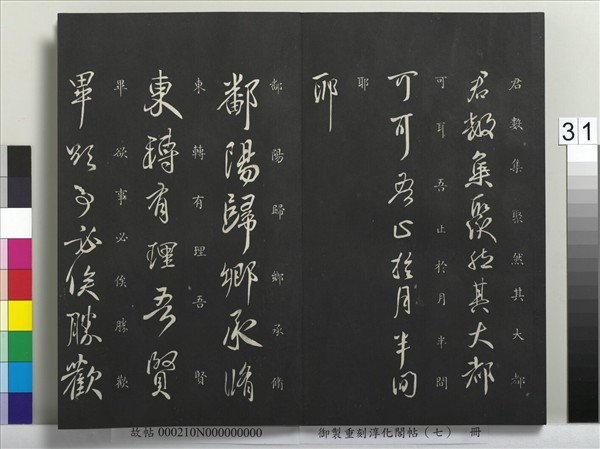 君數集聚然其大都
君數集聚然其大都
可耳吾止於月半間
可耳吾止於月半間
耶
耶
鄱陽歸鄉承脩
鄱陽歸鄉承脩
東轉有理吾賢
東轉有理吾賢
畢欲事必俟勝歡
畢欲事必俟勝歡
31
故帖 000210N000000000 御製重刻淳化閣帖（七） 冊